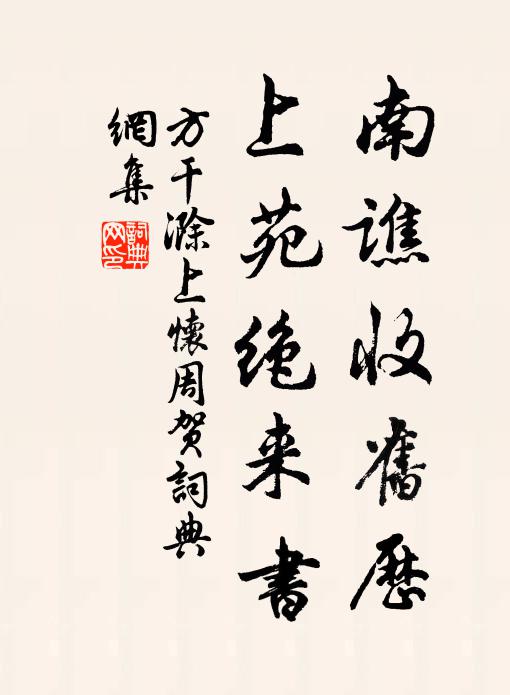 南譙收舊歷
上苑绝来書
方干滁上懷周賀詞典
網集
詞典
网印